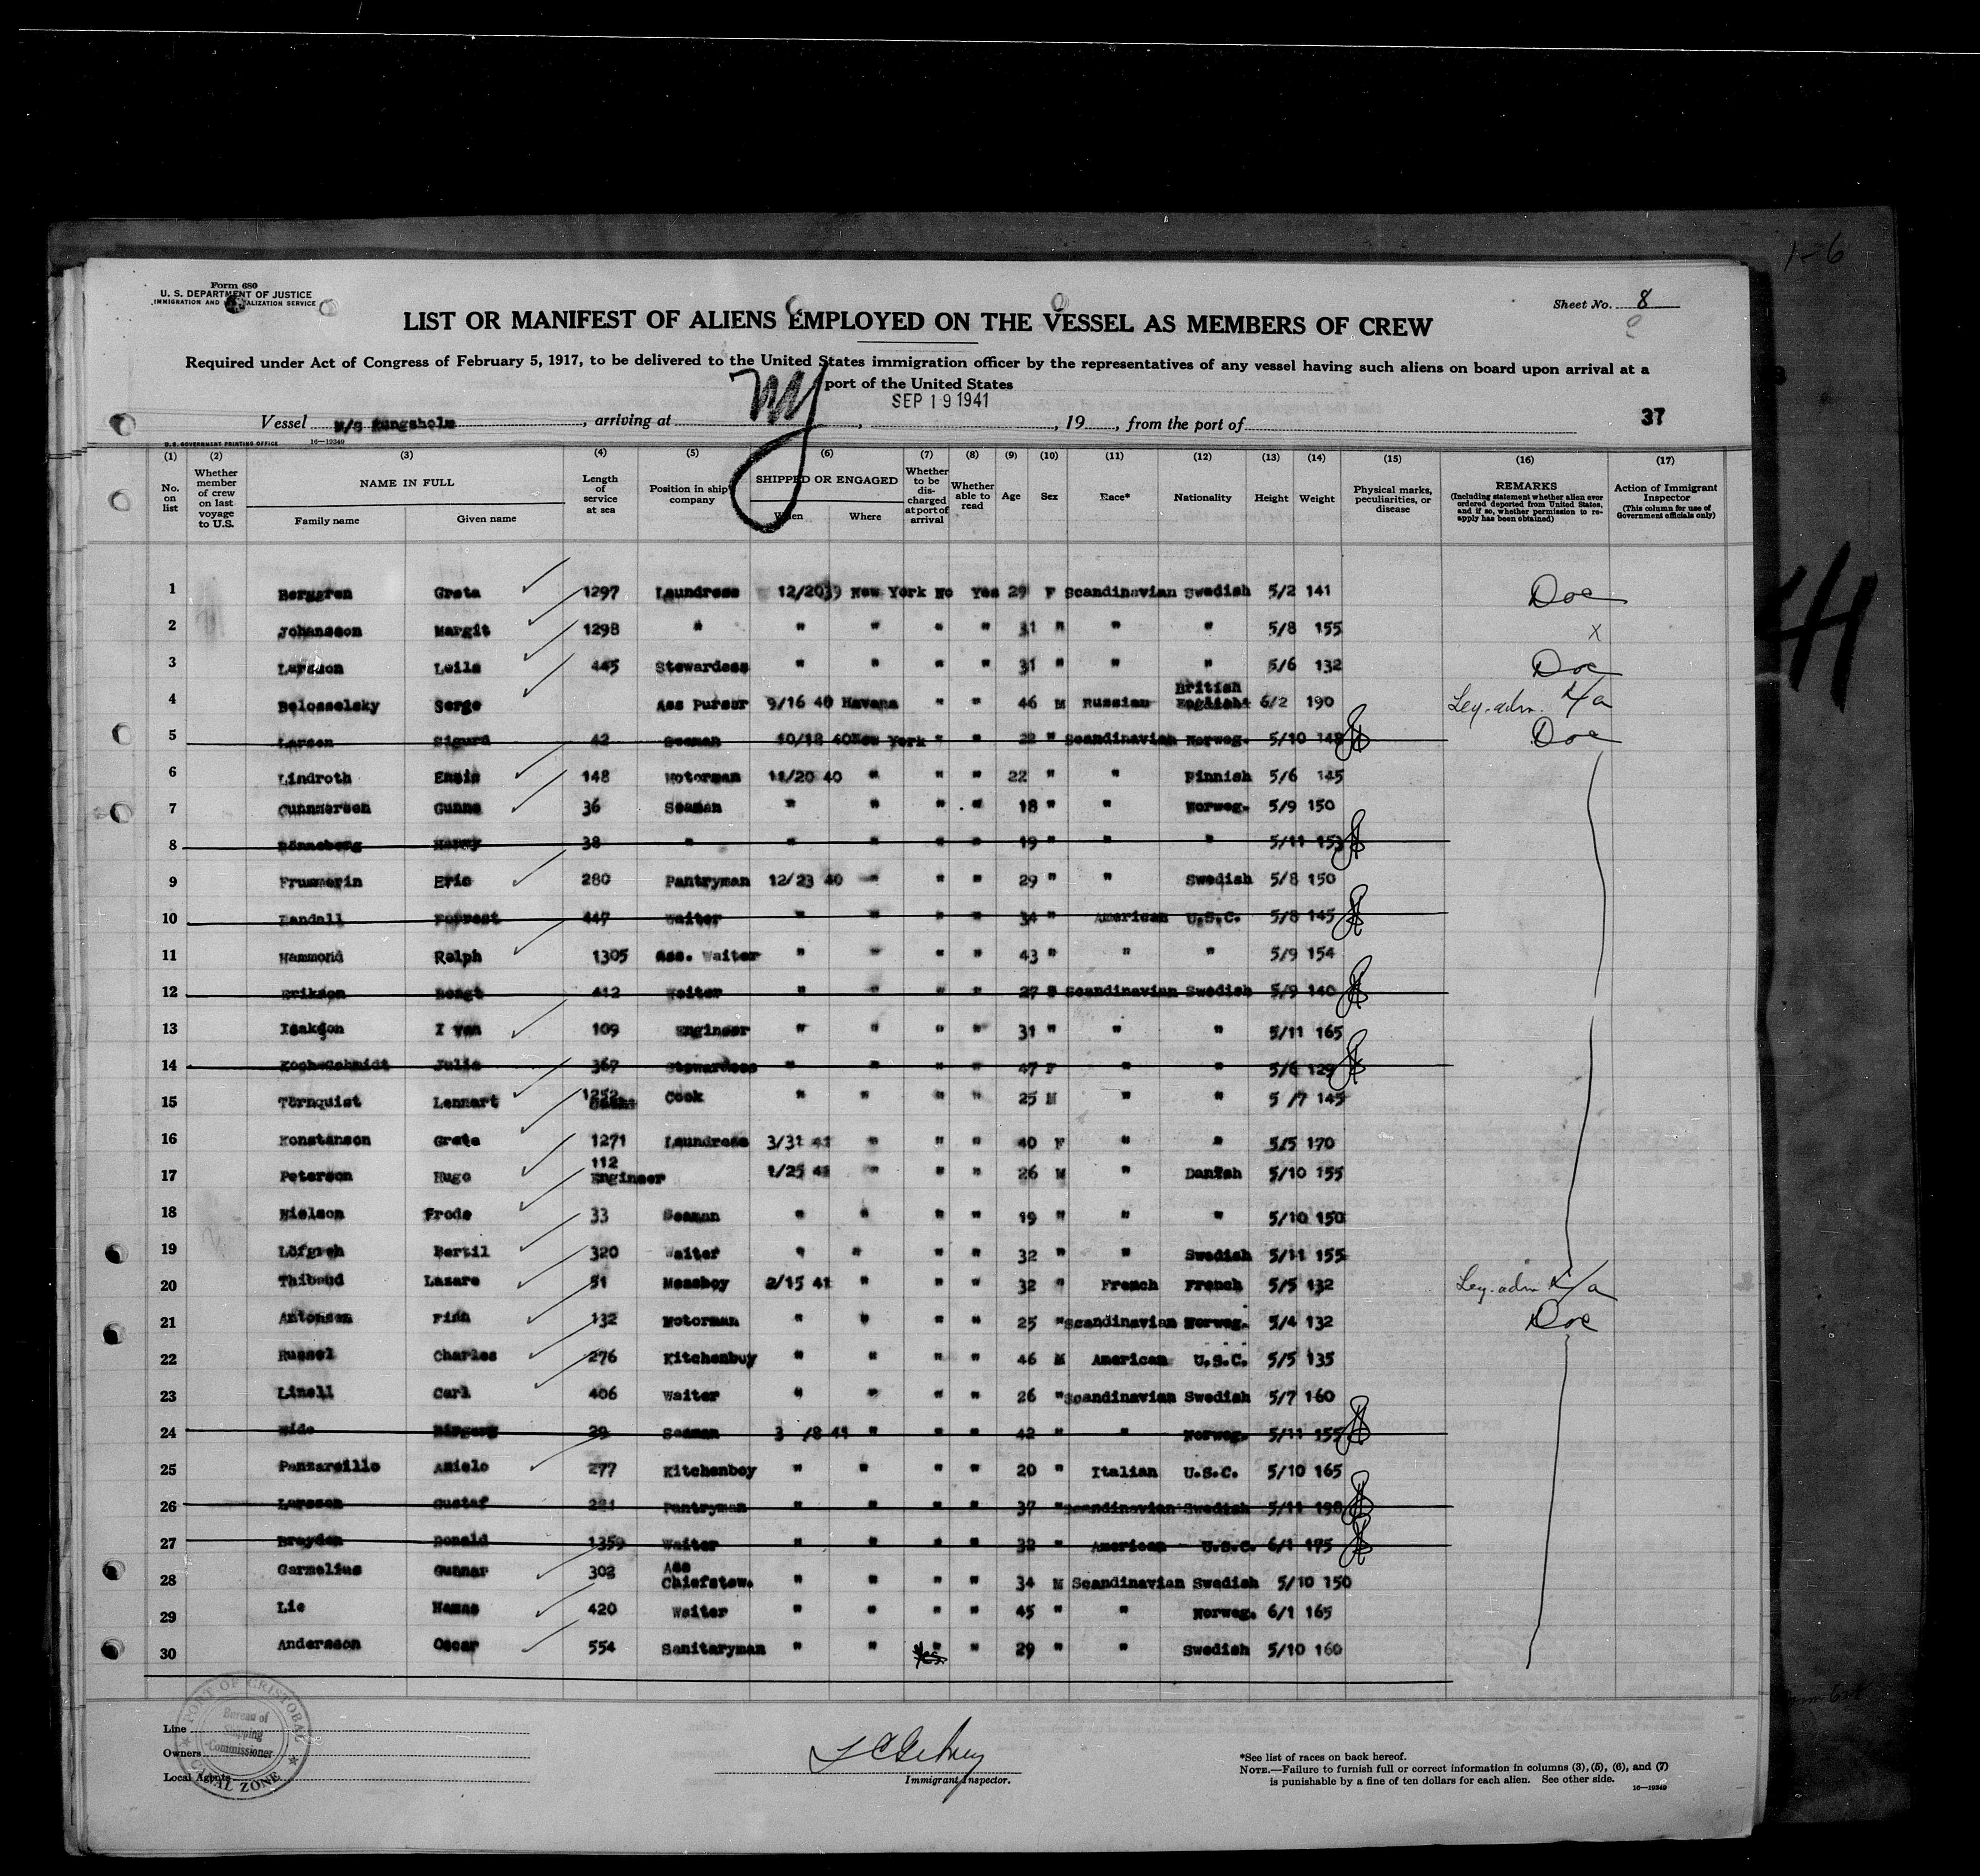 1-6
Form 680
U. S. DEPARTMENT OF JUSTICE
IMMIGRATION AND NATURALIZATION SERVICE
Sheet No. 8
LIST OR MANIFEST OF ALIENS EMPLOYED ON THE VESSEL AS MEMBERS OF CREW
Required under Act of Congress of February 5, 1917, to be delivered to the United States immigration officer by the representatives of any vessel having such aliens on board upon arrival at a
port of the United States
SEP 19 1941
Vessel M/S Kungsholm, arriving at NY, 19, from the port of 37
U. S. GOVERNMENT PRINTING OFFICE 16—19349
(1) (2) (3) (4) (5) (6) (7) (8) (9) (10) (11) (12) (13) (14) (15) (16) (17)
No. on list Whether member of crew on last voyage to U.S. NAME IN FULL Family name Given name Length of service at sea Position in ship company SHIPPED OR ENGAGED When Where Whether to be discharged at port of arrival Whether able to read Age Sex Race* Nationality Height Weight Physical marks, peculiarities, or disease REMARKS (Including statement whether alien ever ordered deported from United States, and if so, whether permission to reapply has been obtained) Action of Immigrant Inspector (This column for use of Government officials only)
1 Berggren Greta 1297 Laundress 12/20 39 New York No Yes 29 F Scandinavian Swedish 5/2 141 Doe
2 Johansson Margit 1298 " " " " " 31 " " " 5/8 155 x
3 Larsson Leila 445 Stewardess " " " " 31 " " " 5/6 132 Doe
4 Belosselsky Serge Ass Purser 9/16 40 Havana " " 46 M Russian British 6/2 190 Leg. adm.
5 Larsen Sigurd 42 Seaman 10/18 40 New York " " 22 " Scandinavian Norweg. 5/10 148 Doe
6 Lindroth 148 Motorman 11/20 40 " " " 22 " " Finnish 5/6 145
7 Gunnarsen Gunne 36 Seaman " " " " 18 " " Norweg. 5/9 150
8 Rönneberg Harry 38 " " " " " 19 " " " 5/11 153
9 Frummerin Eric 280 Pantryman 12/23 40 " " " 29 " " Swedish 5/8 150
10 Randall Forrest 447 Waiter " " " " 34 " American U.S.C. 5/8 145
11 Hammond Ralph 1305 Ass. Waiter " " " " 43 " " " 5/9 154
12 Erikson Bengt 412 Waiter " " " " 27 " Scandinavian Swedish 5/9 140
13 Isakson Ivan 109 Engineer " " " " 31 " " " 5/11 165
14 Koch-Schmidt Julie 367 Stewardess " " " " 47 F " " 5/6 129
15 Törnquist Lennart 1252 Cook " " " " 25 M " " 5/7 145
16 Konstanson Greta 1271 Laundress 3/31 41 " " " 40 F " " 5/5 170
17 Peterson Hugo 112 Engineer 1/25 41 " " " 26 M " Danish 5/10 155
18 Nielson Frode 33 Seaman " " " " 19 " " " 5/10 150
19 Löfgren Bertil 320 Waiter " " " " 32 " " Swedish 5/11 155
20 Thibaud Lazare 51 Messboy 2/15 41 " " " 32 " French French 5/5 132 Leg. adm
21 Antonsen Finn 132 Motorman " " " " 25 " Scandinavian Norweg. 5/4 132 Doe
22 Russel Charles 276 Kitchenboy " " " " 46 M American U.S.C. 5/5 135
23 Linell Carl 406 Waiter " " " " 26 " Scandinavian Swedish 5/7 160
24 Wide Birgert 39 Seaman 3/8 41 " " " 42 " " Norweg. 5/11 155
25 Panzarello Anielo 277 Kitchenboy " " " " 20 " Italian U.S.C. 5/10 165
26 Larsson Gustaf 221 Pantryman " " " " 37 " Scandinavian Swedish 5/11 198
27 Brayden Donald 1359 Waiter " " " " 32 " American U.S.C. 6/1 175
28 Garmelius Gunnar 302 Ass Chiefstew. " " " " 34 M Scandinavian Swedish 5/10 150
29 Lie Hanns 420 Waiter " " " " 45 " " Norweg. 6/1 165
30 Andersson Oscar 554 Sanitaryman " " Yes " 29 " " Swedish 5/10 160
PORT OF CRISTOBAL
Bureau of Shipping Commissioner
CANAL ZONE
Line
Owners
Local Agents
Immigrant Inspector.
*See list of races on back hereof.
NOTE.—Failure to furnish full or correct information in columns (3), (5), (6), and (7)
is punishable by a fine of ten dollars for each alien. See other side. 16—19349